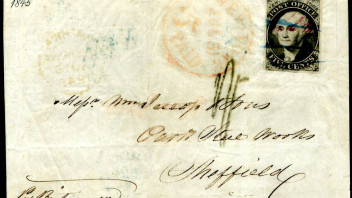 1845
POST OFFICE
FIVE CENTS
Mess. Wm Jessop & Sons
Park Steel Works
Sheffield